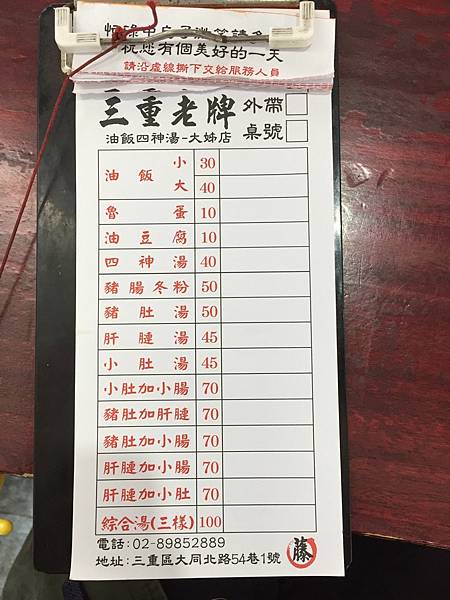 祝您有個美好的一天
請沿虛線撕下交給服務人員
三重老牌 外帶
油飯四神湯-大姊店 桌號
油飯 小 30
大 40
魯蛋 10
油豆腐 10
四神湯 40
豬腸冬粉 50
豬肚湯 50
肝腱湯 45
小肚湯 45
小肚加小腸 70
豬肚加肝腱 70
豬肚加小腸 70
肝腱加小腸 70
肝腱加小肚 70
綜合湯(三樣) 100
電話:02-89852889
地址:三重區大同北路54巷1號
藤